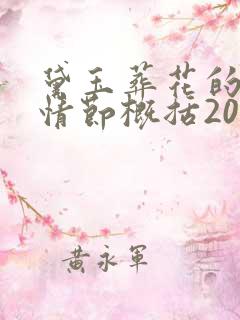 黛玉葬花的
情节概括20
黄永军